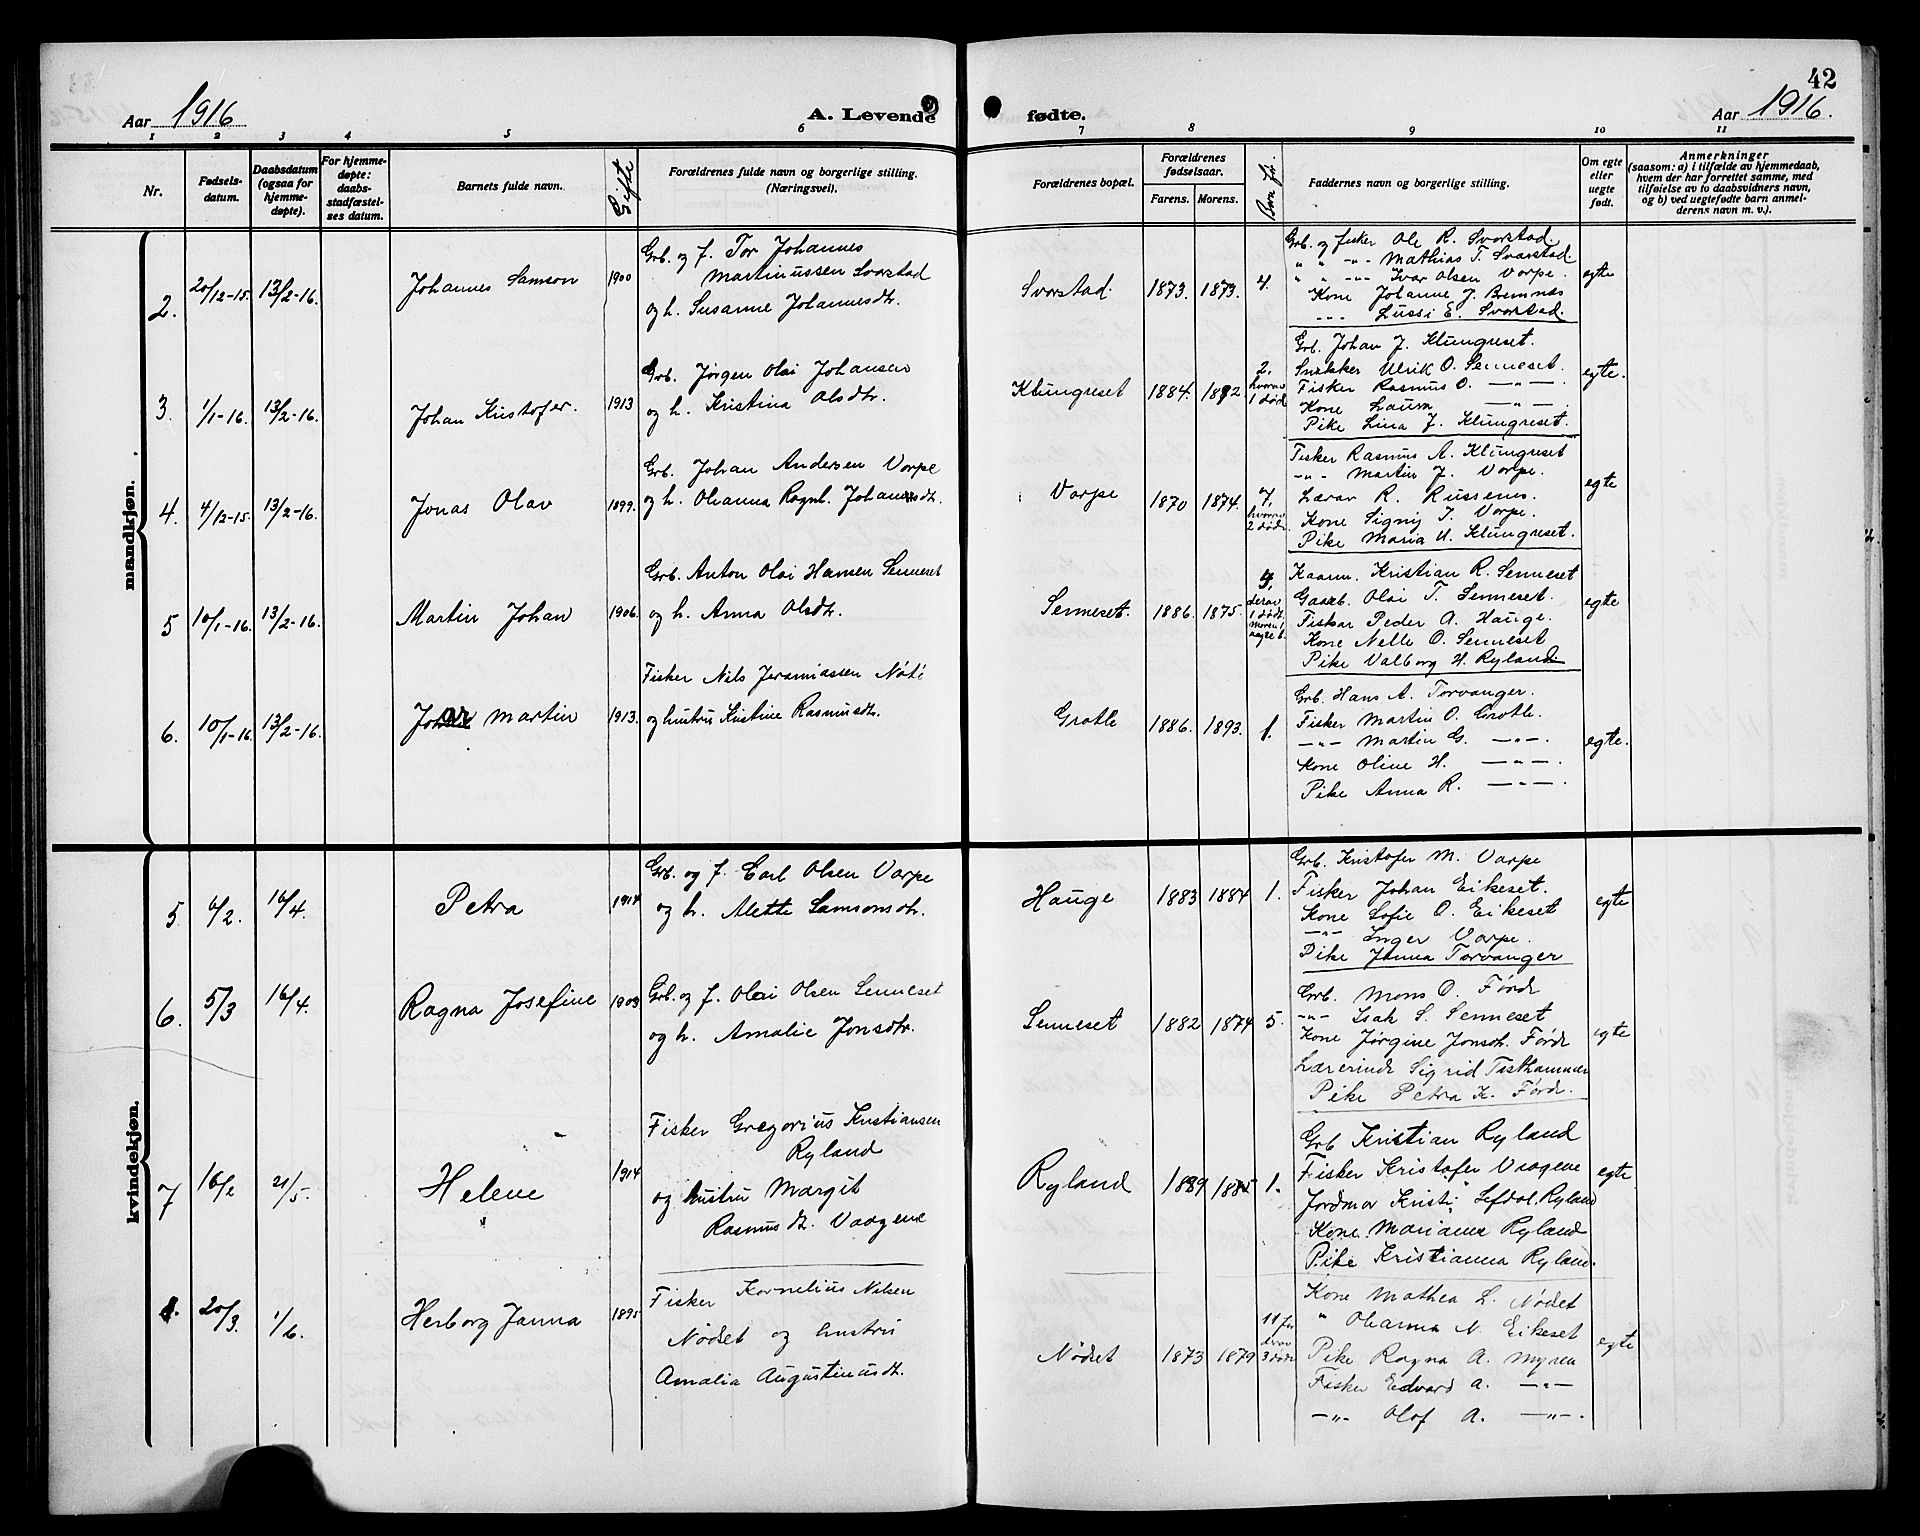 42
Aar 1916
A. Levende fødte.
Aar 1916.
1 2 3 4 5 6 7 8 9 10 11
Nr.
Fødsels-
datum.
Daabsdatum
(ogsaa for
hjemme-
døpte).
For hjemme-
døpte:
daabs-
stadfæstel-
ses datum.
Barnets fulde navn.
Gifte
Forældrenes fulde navn og borgerlige stilling.
(Næringsvei).
Forældrenes bopæl.
Forældrenes
fødselsaar.
Farens. Morens.
Barn fr.
Faddernes navn og borgerlige stilling.
Om egte
eller
uegte
født.
Anmerkninger
(saasom: a) i tilfælde av hjemmedaab,
hvem der har forrettet samme, med
tilføielse av to daabsvidners navn,
og b) ved uegtefødte barn anmel-
derens navn m. v.).
mandkjøn.
2. 20/12-15. 13/2-16. Johannes Samson 1900
Grb. og f. Tor Johannes
Martinussen Svarstad
og h. Susanne Johannesdtr.
Svorstad 1873. 1873. 4.
Grb. og fisker Ole R. Svorstad.
" " -"- Mathias T. Svarstad.
" " -"- Ivar Olsen Vorpe.
Kone Johanne J. Bremnes
-"- Lussi E. Svorstad.
egte
3. 1/1-16. 13/2-16. Johan Kristofer. 1913
Grb. Jørgen Olai Johansen
og h. Kristina Olsdtr.
Klungreset 1884. 1892
2.
hvorav
1 død
Grb. Johan J. Klungreset.
Snekker Ulrik O. Senneset.
Fisker Rasmus O. —"—.
Kone Laura —"—.
Pike Lina J. Klungreset.
egte.
4. 4/12-15. 13/2-16. Jonas Olav 1899.
Grb. Johan Andersen Vorpe
og h. Olianna Ragnh. Johannesdtr.
Vorpe 1870 1874.
7,
hvorav
2 døde
Fisker Rasmus A. Klungreset
-"- Martin J. Vorpe.
Lærer R. Russenes.
Kone Signij I. Vorpe.
Pike Maria U. Klungreset.
egte
5 10/1-16. 13/2-16. Martin Johan 1906.
Grb. Anton Olai Hansen Senneset
og h. Anna Olsdtr.
Senneset. 1886. 1875.
derav
1 død.
Kaarm. Kristian R. Senneset
Gaarb. Olai T. Senneset.
Fisker Peder A. Hauge.
Kone Nelle O. Senneset
Pike Valborg H. Ryland.
egte
6. 10/1-16 13/2-16. Martin 1913.
Fisker Nils Jeramiassen
og hustru Kristine Rasmusdtr.
Grotle 1886. 1893. 1.
Grb. Hans A. Torvanger.
Fisker Martin O. Grotle.
—"— Martin G. —"—.
Kone Oline H. —"—.
Pike Anna R. —"—.
egte.
kvindekjøn.
5 6/2. 16/4. Petra 1914
Grb. og f. Carl Olsen Vorpe
og h. Alette Samsonsdtr.
Hauge 1883 1884 1.
Grb. Kristofer M. Vorpe
Fisker Johan Eikeset.
Kone Sofie O. Eikeset
—"— Inger Vorpe.
Pike Janna Torvanger
egte
6. 5/3 16/4. Ragna Josefine 1903
Grb. og f. Olai Olsen Senneset
og h. Amalie Jonsdtr.
Senneset 1882 1874 5.
Grb. Mons O. Førde
-"- Isak S. Senneset
Kone Jørgine Jonsdt. Førde
Lærerinde Sigrid Tisthammer
Pike Petra K. Førde.
egte
7 16/2 21/5. Helene 1914
Fisker Gregorius Kristiansen
Ryland
og hustru Margit
Rasmusdt. Vaagene
Ryland 1889 1.
Grb Kristian Ryland
Fisker Kristofer Vaagene
Jordmor Kristi Lefdal, Ryland
Kone Marianne Ryland
Pike Kristianna Ryland.
egte
20/3. 1/6. Herborg Janna 1895
Fisker Kornelius Nilsen
Nødset og hustru
Amalia Augustinusdt.
Nødset 1873 1879
11 før
derav
3 døde
Kone Mathea L. Nødset
" Olianna N. Eikeset
Pike Ragna A. Myren
Fisker Edvard A. —"—
—"— Olof A. —"—.
egte